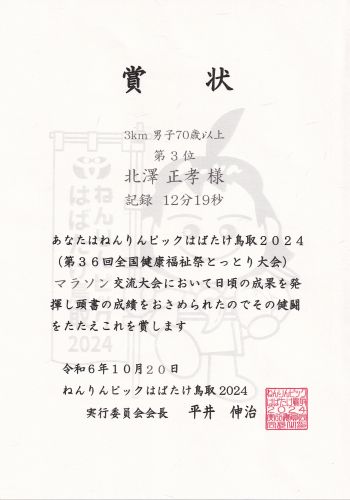 賞状
3km 男子70歳以上
第3位
北澤 正孝 様
記録 12分19秒
あなたはねんりんピックはばたけ鳥取2024
(第36回全国健康福祉祭とっとり大会)
マラソン交流大会において日頃の成果を発
揮し頭書の成績をおさめられたのでその健闘
をたたえこれを賞します
令和6年10月20日
ねんりんピックはばたけ鳥取2024
実行委員会会長 平井 伸治
ねんりんピック
はばたけ鳥取
2024
ねんりん
はばた
2024